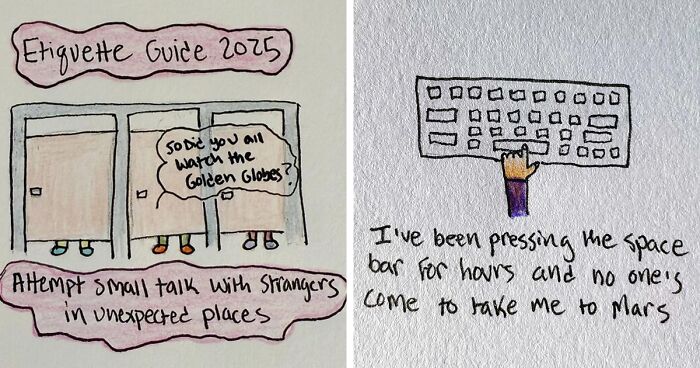 Etiquette Guide 2025
So Did you all
watch the
Golden Globes?
Attempt small talk with strangers
in unexpected places
I've been pressing the space
bar for hours and no one's
come to take me to Mars